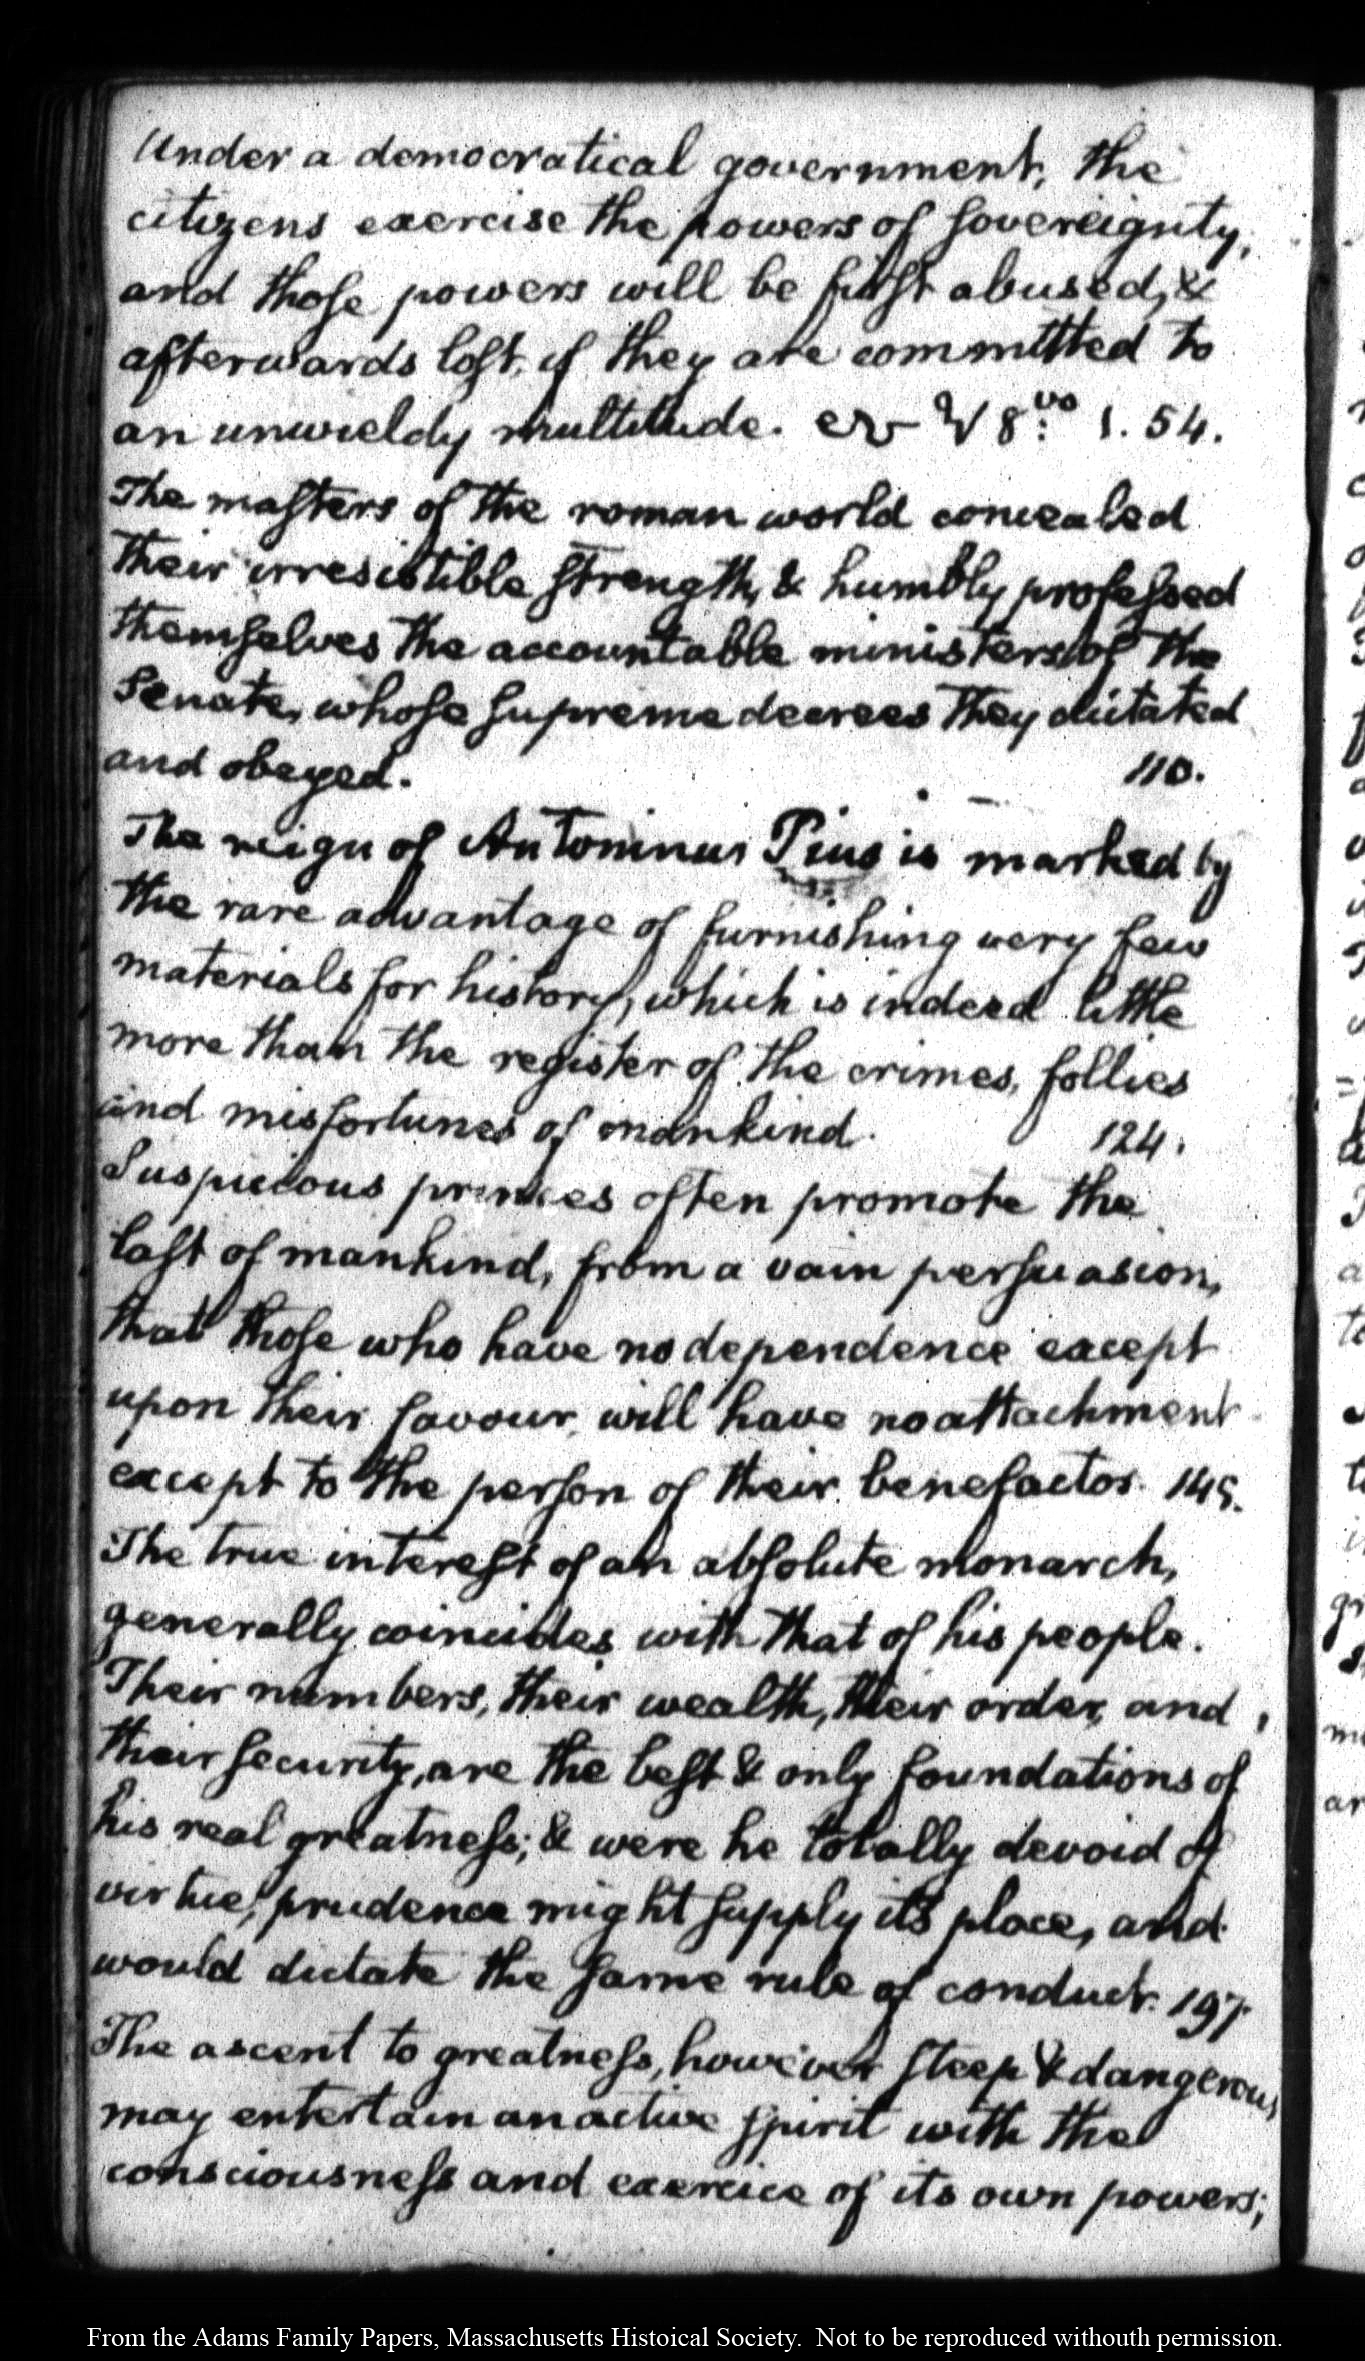 Under a democratical government, the
citizens exercise the powers of sovereignty,
and those powers will be first abused, &
afterwards lost, if they are committed to
an unwieldy multitude. 8:vo 1. 54.
The masters of the roman world concealed
their irresistible strength, & humbly professed
themselves the accountable ministers of the
Senate, whose supreme decrees they dictated
and obeyed. 110.
The reign of Antoninus Pius is marked by
the rare advantage of furnishing very few
materials for history, which is indeed little
more than the register of the crimes, follies
and misfortunes of mankind. 124.
Suspicious princes often promote the
last of mankind, from a vain persuasion,
that those who have no dependence except
upon their favour, will have no attachment
except to the person of their benefactor. 145.
The true interest of an absolute monarch,
generally coincides with that of his people.
Their numbers, their wealth, their order, and
their security, are the best & only foundations of
his real greatness; & were he totally devoid of
virtue, prudence might supply its place, and
would dictate the same rule of conduct. 197.
The ascent to greatness, however steep & dangerous
may entertain an active spirit with the
consciousness and exercice of its own powers;
From the Adams Family Papers, Massachusetts Histoical Society. Not to be reproduced withouth permission.